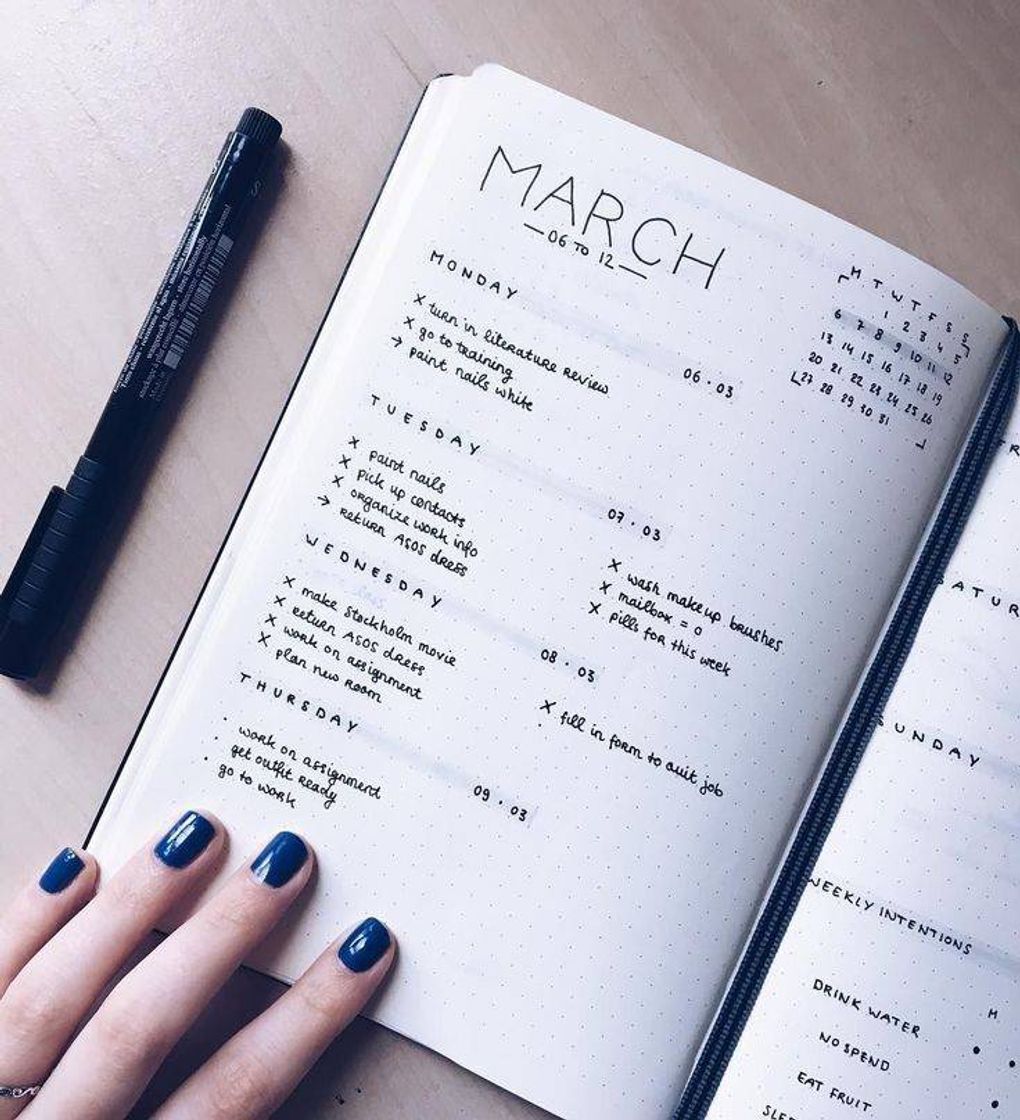 MARCH
06 TO 12
M T W T F S S
1 2 3 4 5
6 7 8 9 10 11 12
13 14 15 16 17 18 19
20 21 22 23 24 25 26
27 28 29 30 31
MONDAY
06.03
x turn in literature review
x go to training
→ paint nails white
TUESDAY
07.03
x paint nails
x pick up contacts
x organize work info
→ return ASOS dress
x wash makeup brushes
x mailbox = 0
x pills for this week
WEDNESDAY
08.03
x make Stockholm movie
x return ASOS dress
x work on assignment
x plan new room
x fill in form to quit job
THURSDAY
09.03
· work on assignment
· get outfit ready
· go to work
SUNDAY
WEEKLY INTENTIONS
M
DRINK WATER
NO SPEND
EAT FRUIT